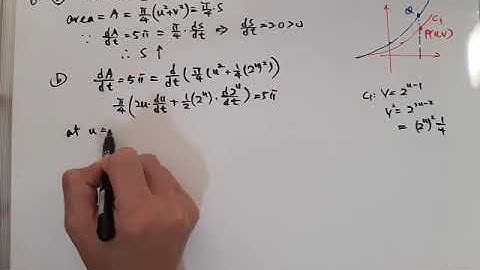 area = A = π/4 (u²+v²) = π/4 · S
∵ dA/dt = 5π = π/4 · dS/dt ⇒ dS/dt = 20 > 0
∴ S ↑
ⓑ dA/dt = 5π = d/dt (π/4 (u² + 1/4 (2^u)²))
π/4 (2u · du/dt + 1/2 (2^u) · d2^u/dt) = 5π
at u =
Q
C₁
P(u,v)
C₁: V = 2^(u-1)
V² = 2^(2u-2)
= (2^u)² 1/4